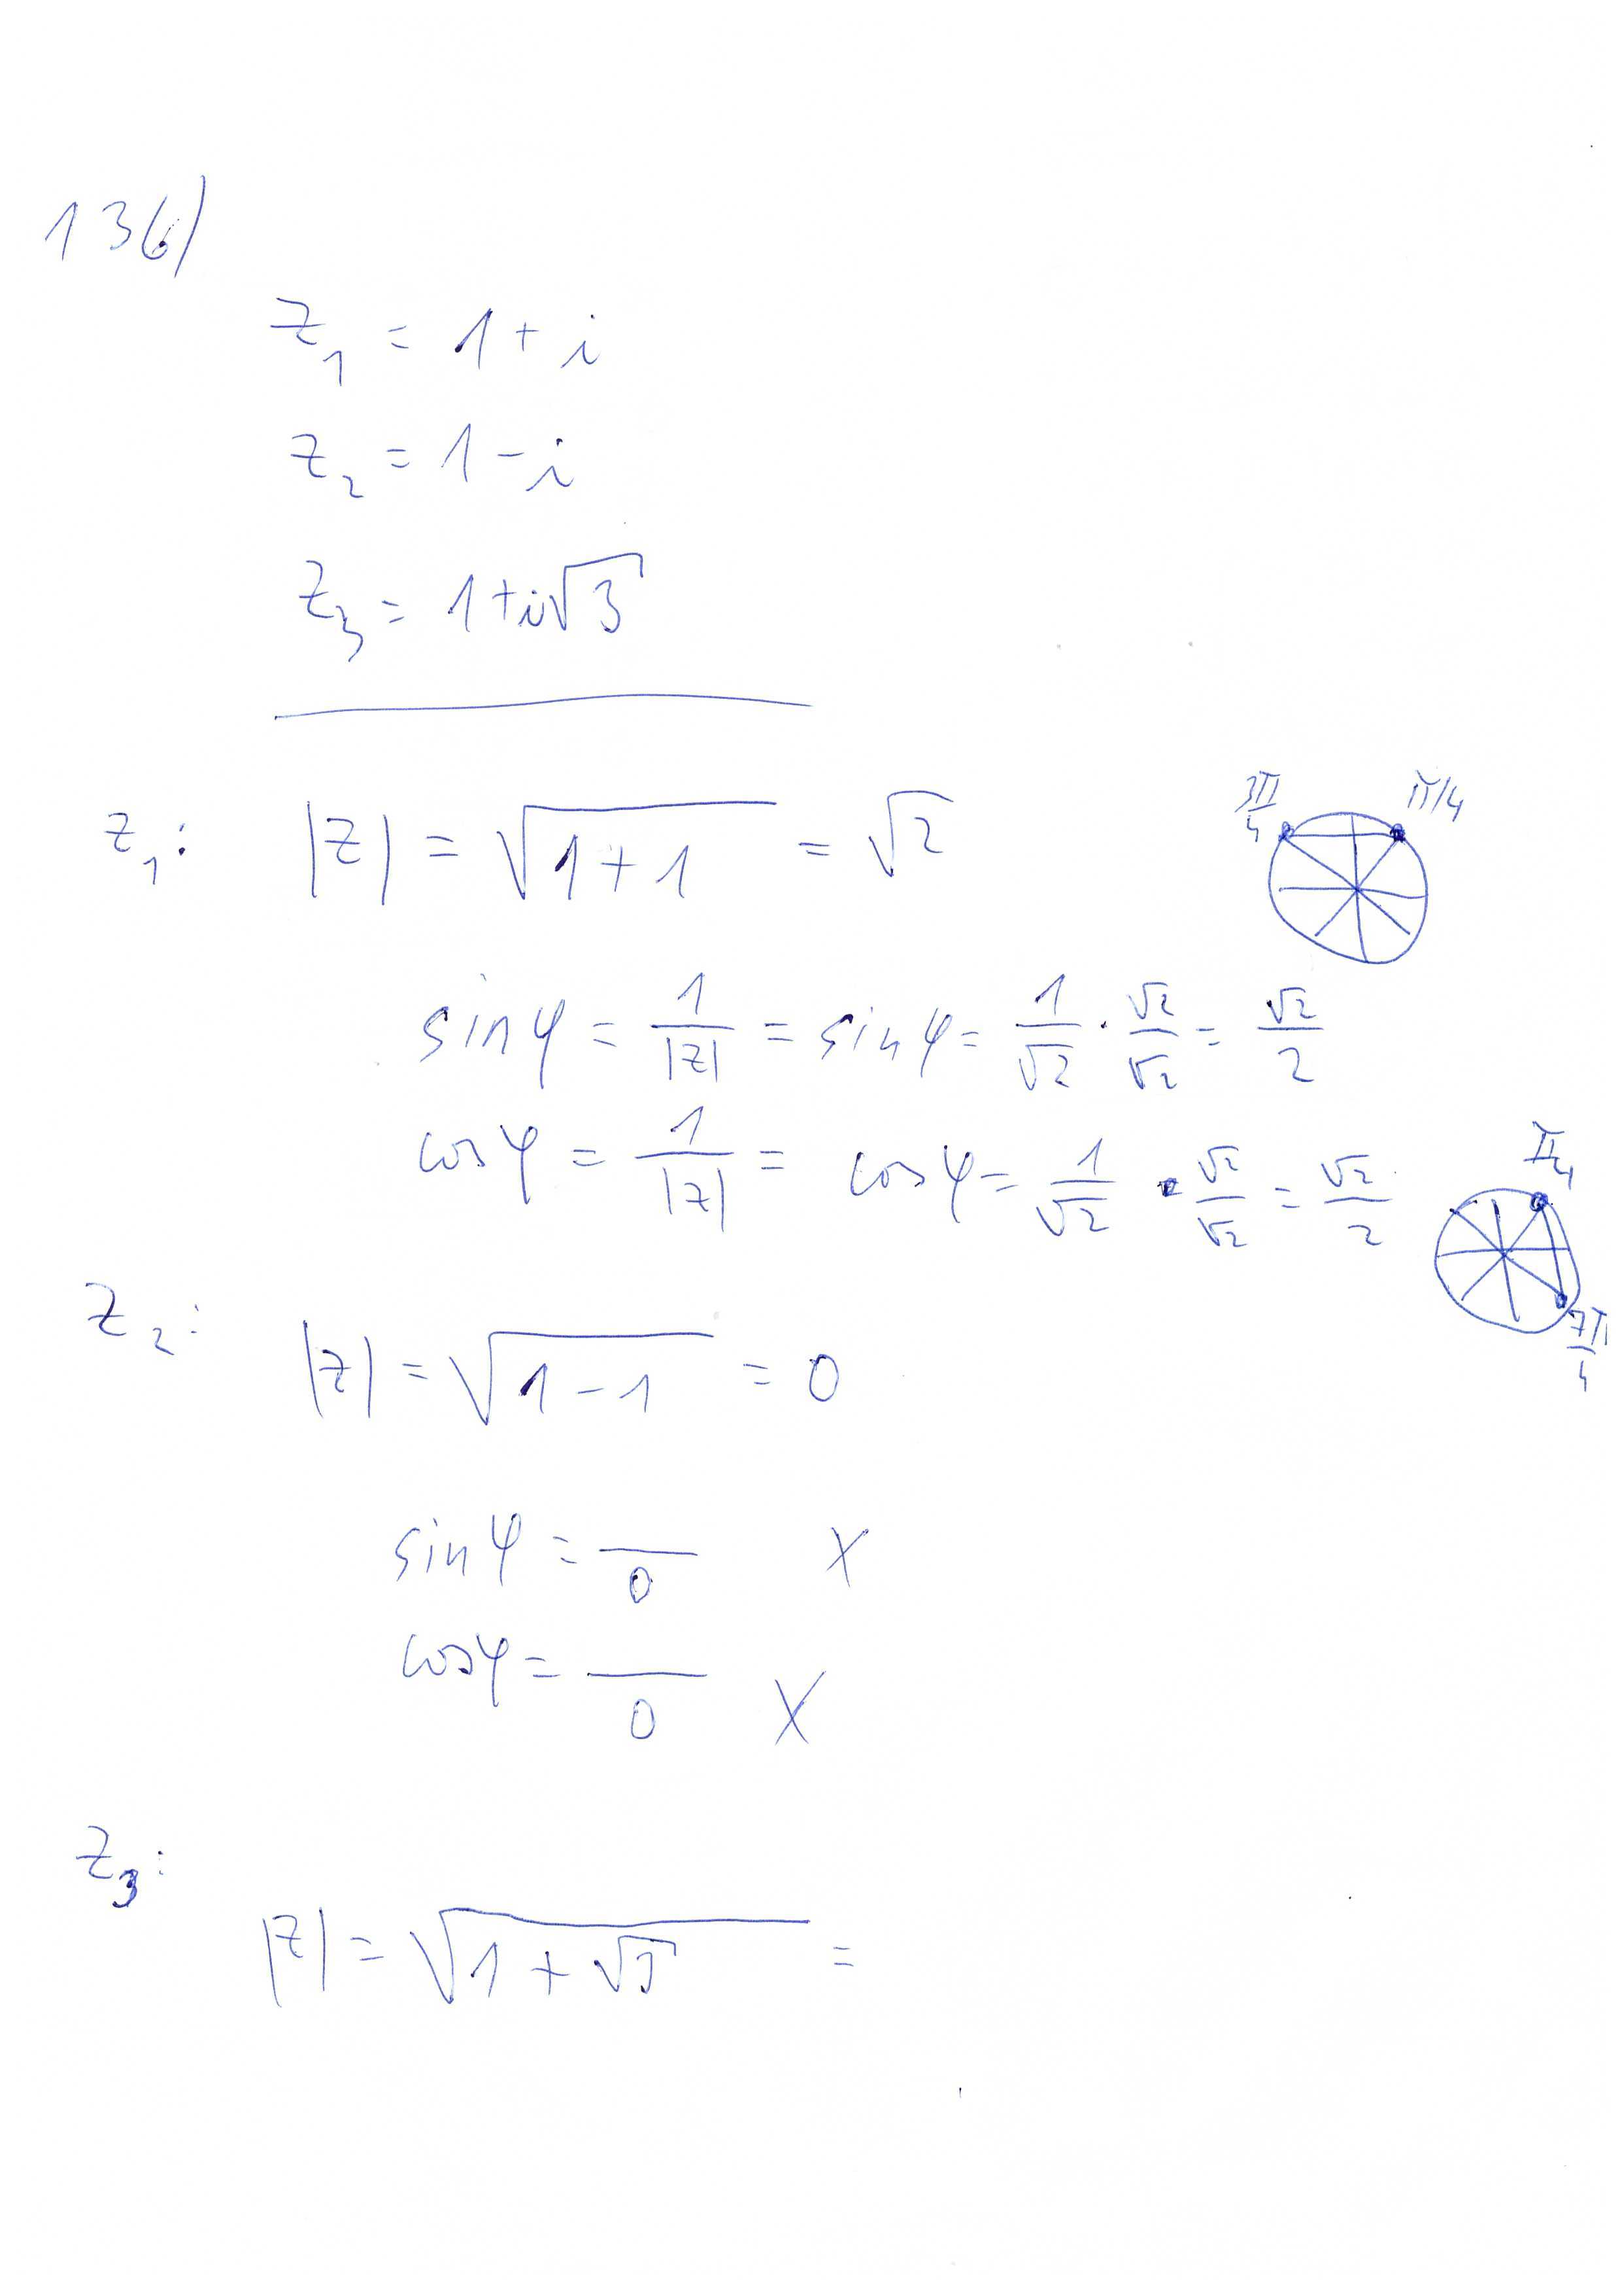 136)
z₁ = 1 + i
z₂ = 1 - i
z₃ = 1 + i√3
z₁: |z| = √(1 + 1) = √2
3π/4 π/4
sin φ = 1/|z| = sin φ = 1/√2 · √2/√2 = √2/2
cos φ = 1/|z| = cos φ = 1/√2 · √2/√2 = √2/2
π/4
7π/4
z₂: |z| = √(1 - 1) = 0
sin φ = /0 X
cos φ = /0 X
z₃:
|z| = √(1 + √3) =